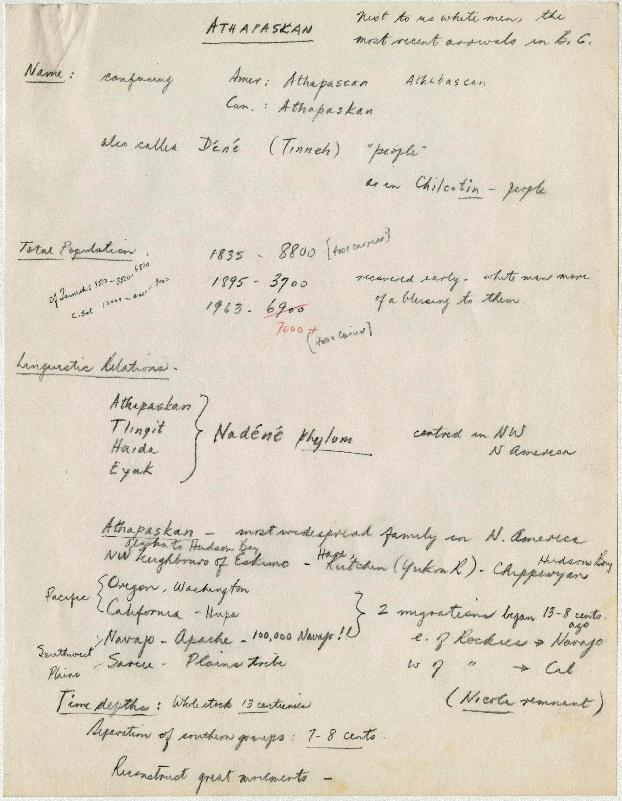 ATHAPASKAN
Next to us white men, the
most recent arrivals in B.C.
Name: confusing Amer: Athapascan Athabascan
Can.: Athapaskan
also called Déné (Tinneh) "people"
as in Chilcotin - people
Total Population:
1835 - 8800 [4000 carriers]
1895 - 3700 recovered early - white man more
of a blessing to them.
1963 - 6900
7000+
Linguistic Relations -
Athapaskan
Tlingit
Haida
Eyak
Nadéné Phylum centred in NW
N America
Athapaskan - most widespread family in N. America
Alaska to Hudson Bay
NW Neighbours of Eskimo - Hare, Kutchin (Yukon R) - Chippewyan Hudson Bay
Pacific Oregon, Washington
California - Hupa
2 migrations began 13-8 cents.
ago
Navajo - Apache - 100,000 Navajo!! e. of Rockies → Navajo
Southwest
Plains Sarcee - Plains tribe w of " → Cal
(Nicola remnant)
Time depths: Whole stock 13 centuries
Separation of southern groups: 7-8 cents.
Reconstruct great movements -